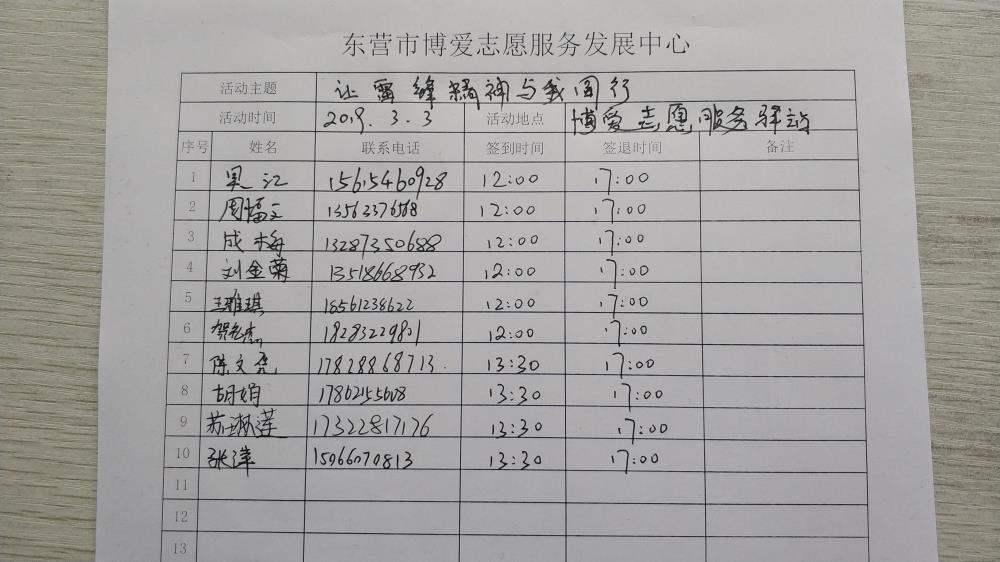 东营市博爱志愿服务发展中心
活动主题 让雷锋精神与我同行
活动时间 2019.3.3 活动地点 博爱志愿服务驿站
序号 姓名 联系电话 签到时间 签退时间 备注
1 吴江 15615460928 12:00 17:00
2 周福文 12:00 17:00
3 成梅 13287350688 12:00 17:00
4 刘金菊 13518668932 12:00 17:00
5 王雅琪 18561238622 12:00 17:00
6 12:00 17:00
7 陈文尧 17828868713 13:30 17:00
8 胡娟 17862155608 13:30 17:00
9 苏琳莲 17322817176 13:30 17:00
10 张洋 15066070813 13:30 17:00
11
12
13